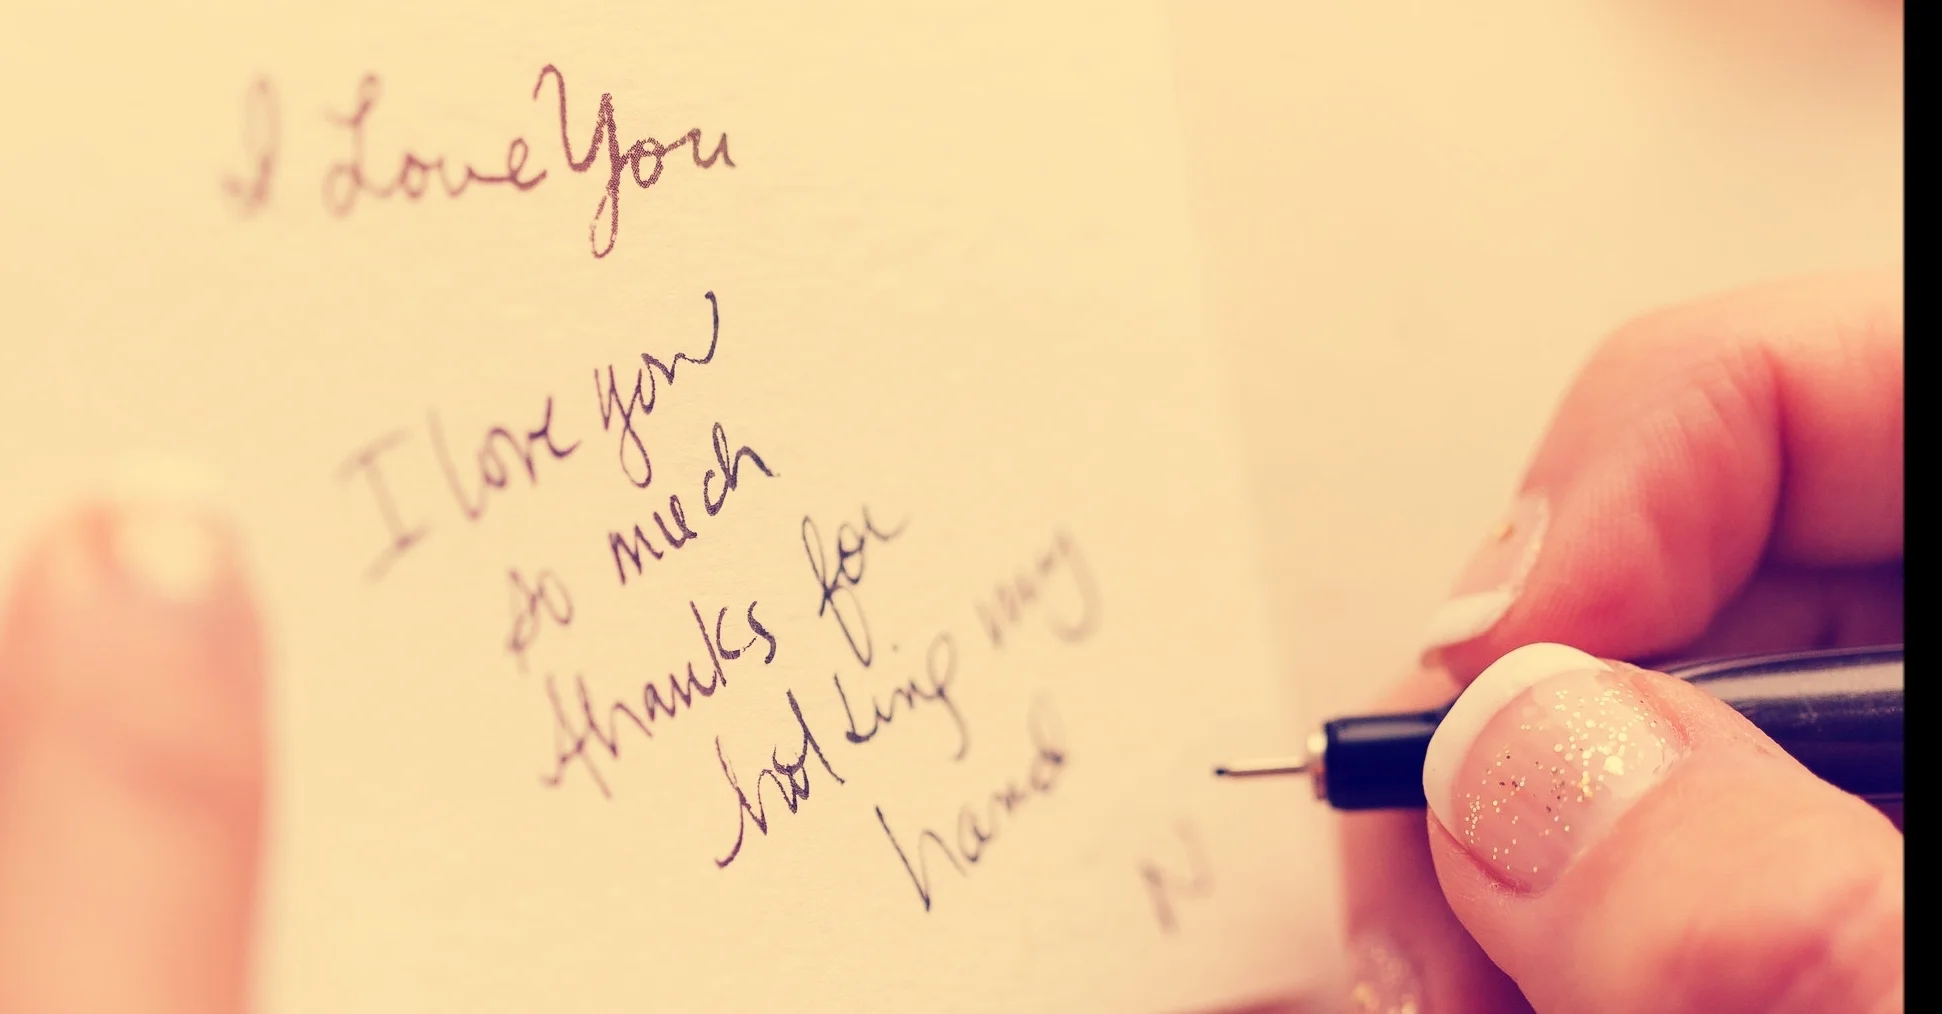 I Love You
I love you
so much
thanks for
holding my
hand
N